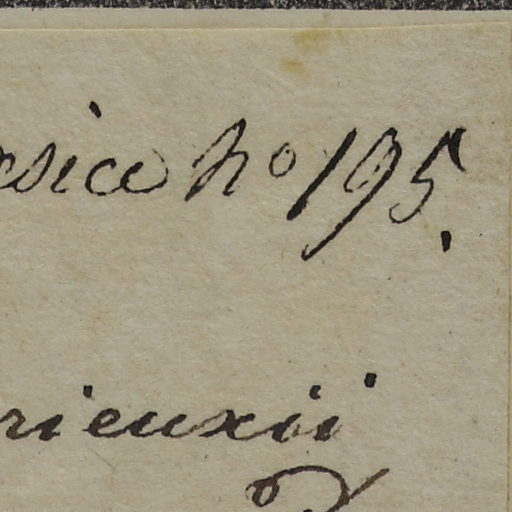 esica no 195.
rieuxii